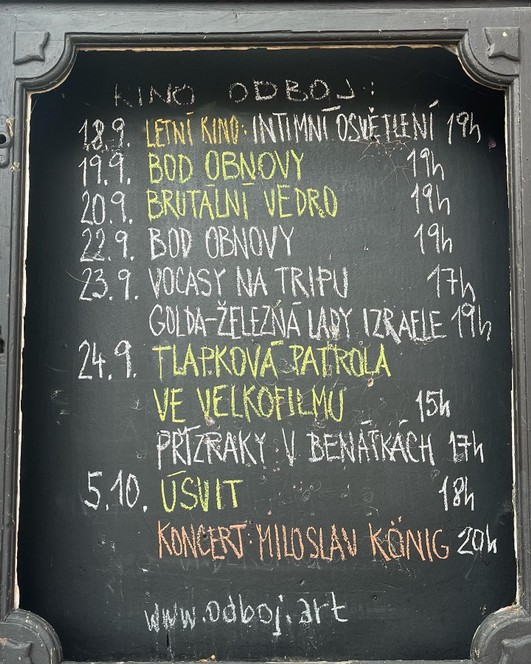 KINO ODBOJ:
18.9. LETNÍ KINO: INTIMNÍ OSVĚTLENÍ 19h
19.9. BOD OBNOVY 19h
20.9. BRUTÁLNÍ VEDRO 19h
22.9. BOD OBNOVY 19h
23.9. VOCASY NA TRIPU 17h
GOLDA-ŽELEZNÁ LADY IZRAELE 19h
24.9. TLAPKOVÁ PATROLA
VE VELKOFILMU 15h
PŘÍZRAKY V BENÁTKÁCH 17h
5.10. ÚSVIT 18h
KONCERT: MILOSLAV KÖNIG 20h
www.odboj.art